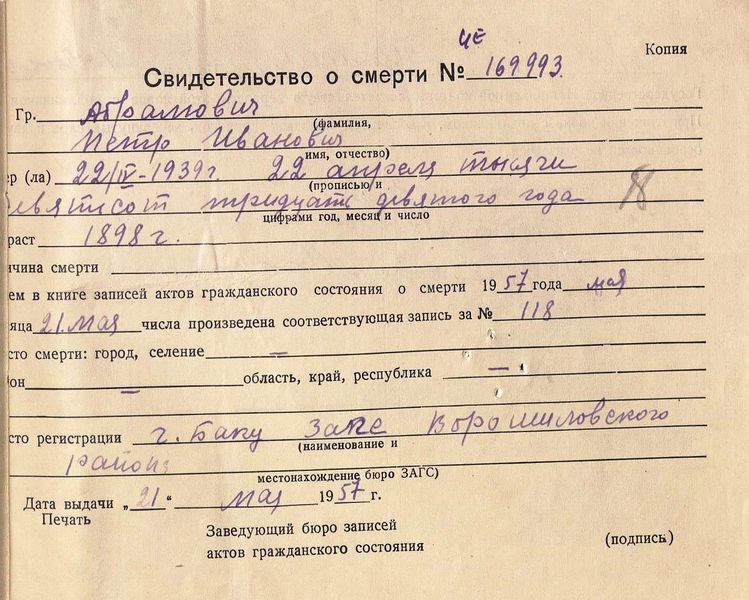 Копия
ЦЕ
Свидетельство о смерти № 169993.
Гр. Абрамович
(фамилия,
Петр Иванович
имя, отчество)
ер (ла) 22/IV-1939г. 22 апреля тысячи
(прописью и
евятисот тридцать девятого года
цифрами год, месяц и число
раст 1898 г.
ичина смерти
ем в книге записей актов гражданского состояния о смерти 1957 года мая
яца 21 мая числа произведена соответствующая запись за № 118
сто смерти: город, селение —
он — область, край, республика —
сто регистрации г. Баку Загс Ворошиловского
(наименование и
района
местонахождение бюро ЗАГС)
Дата выдачи „21“ мая 1957 г.
Печать
Заведующий бюро записей
актов гражданского состояния
(подпись)